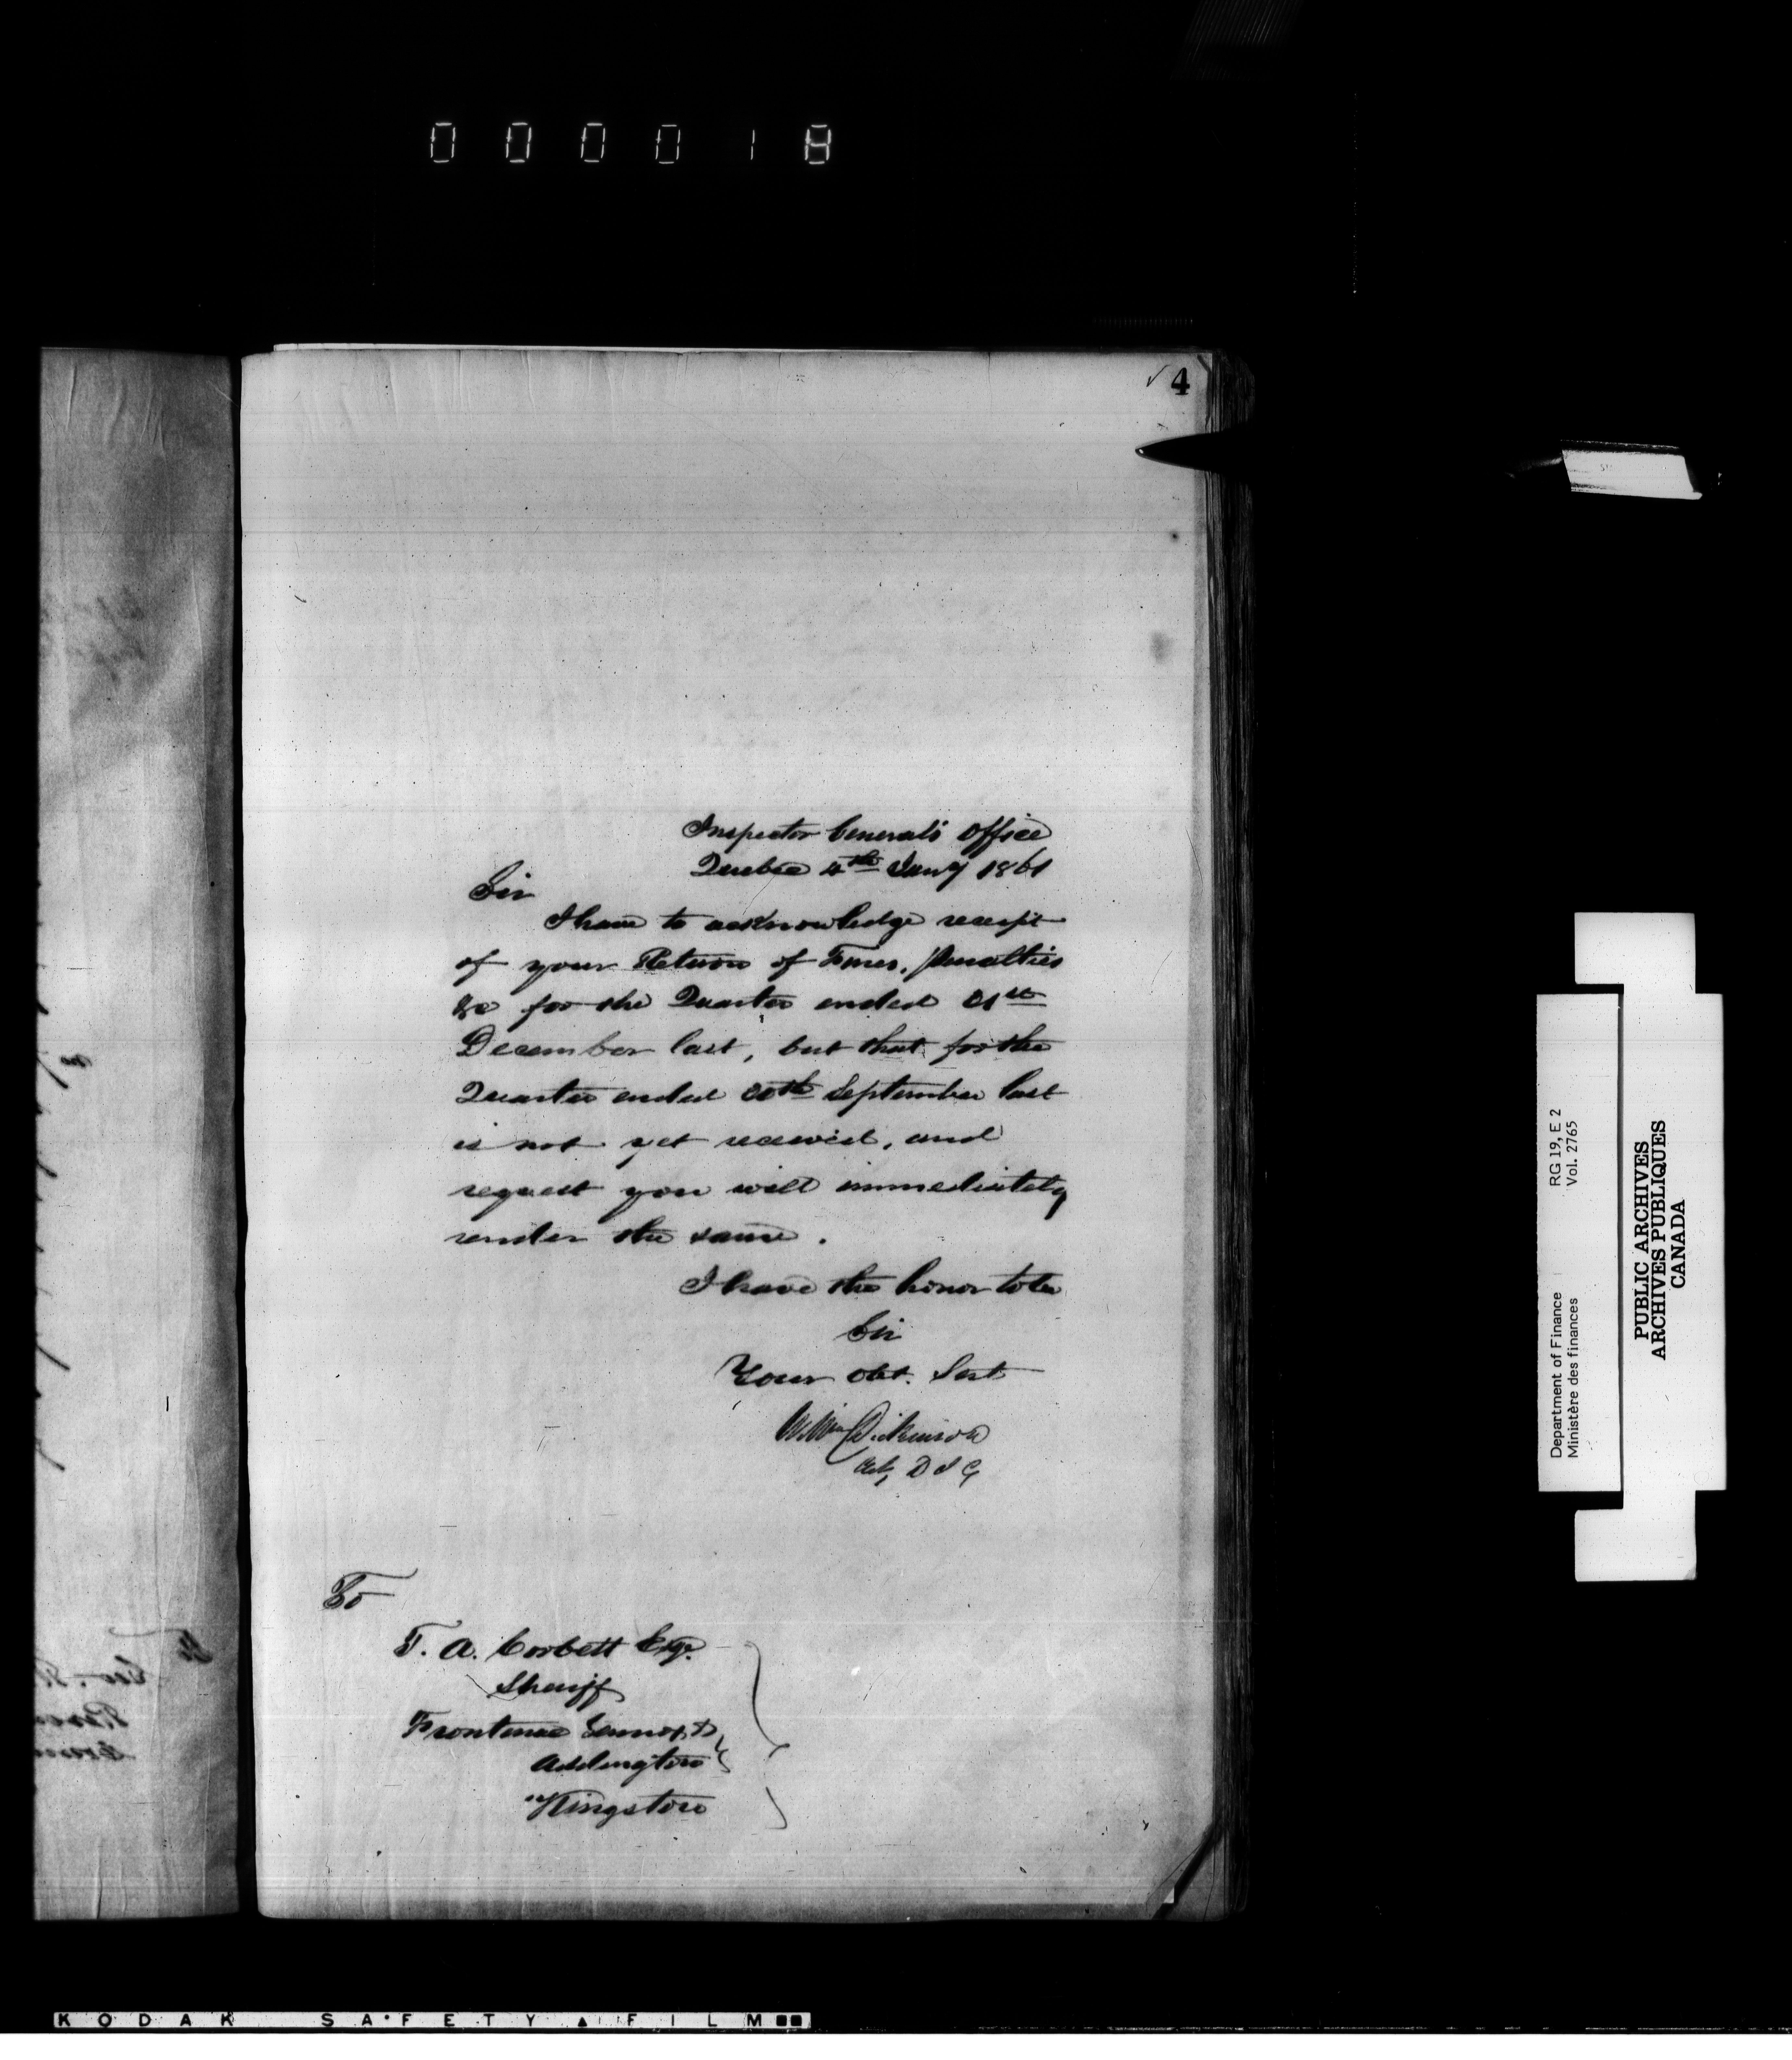 000018
4
Inspector General's Office
Quebec 4th Jany 1861
Sir
I have to acknowledge receipt
of your Return of Fines, Penalties
&c for the Quarter ended 31st
December last, but that for the
Quarter ended 30th September last
is not yet received, and
request you will immediately
render the same.
I have the honor to be
Sir
Your Obt. Sert
Wm Dickinson
Actg D I G
To
T. A. Corbett Esqr.
Sheriff
Frontenac Lennox &
Addington
Kingston
Department of Finance RG 19, E 2
Ministère des finances Vol. 2765
PUBLIC ARCHIVES
ARCHIVES PUBLIQUES
CANADA
KODAK SAFETY FILM